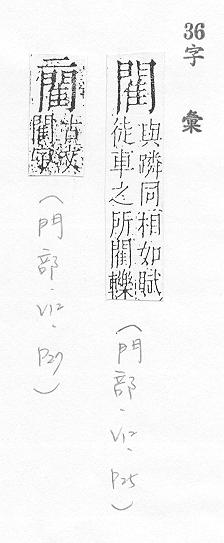 36字 彙
閵
與躪同相如賦
徒車之所閵轢
(門部.V12.P25)
古文
(門部.V12.P27)